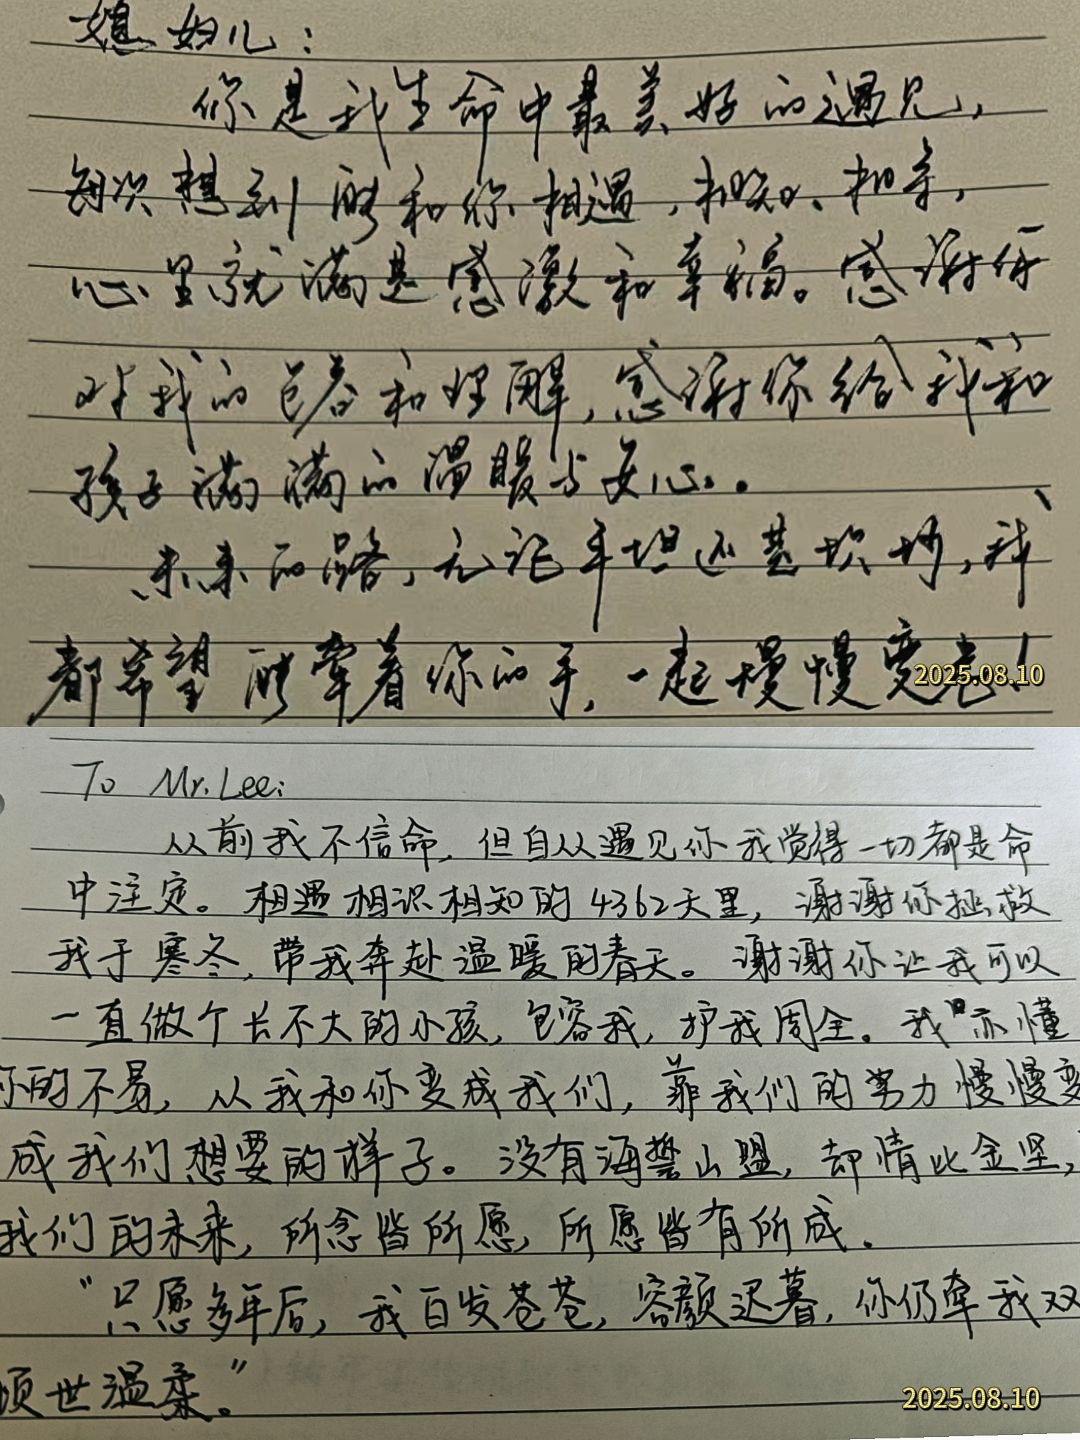 媳妇儿：
你是我生命中最美好的遇见，
每次想到能和你相遇、相知、相亲，
心里就满是感激和幸福。感谢你
对我的包容和理解，感谢你给我和
孩子满满的温暖与安心。
未来的路，无论平坦还是坎坷，我
都希望能牵着你的手，一起慢慢变老！
2025.08.10
To Mr.Lee:
从前我不信命，但自从遇见你我觉得一切都是命
中注定。相遇相识相知的4362天里，谢谢你拯救
我于寒冬，带我奔赴温暖的春天。谢谢你让我可以
一直做个长不大的小孩，包容我，护我周全。我亦懂
你的不易，从我和你变成我们，靠我们的努力慢慢变
成我们想要的样子。没有海誓山盟，却情比金坚，
我们的未来，所念皆所愿，所愿皆有所成。
“只愿多年后，我白发苍苍，容颜迟暮，你仍牵我双
倾世温柔。”
2025.08.10